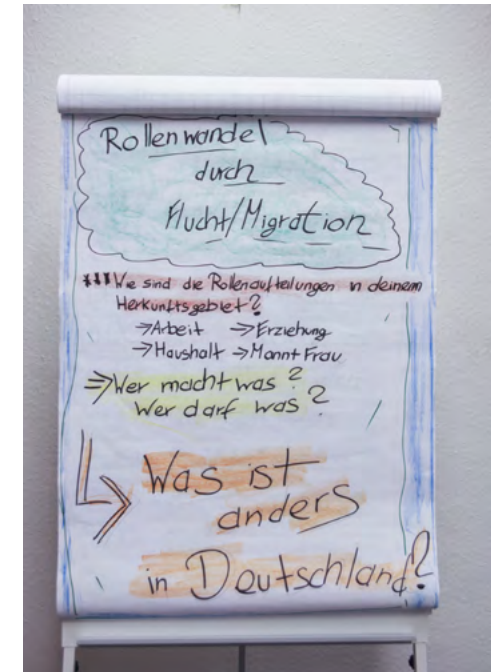 Rollenwandel
durch
Flucht/Migration
*** Wie sind die Rollenaufteilungen in deinem
Herkunftsgebiet?
→Arbeit →Erziehung
→Haushalt →Mannt Frau
⇒Wer macht was?
Wer darf was?
Was ist
anders
in Deutschland?